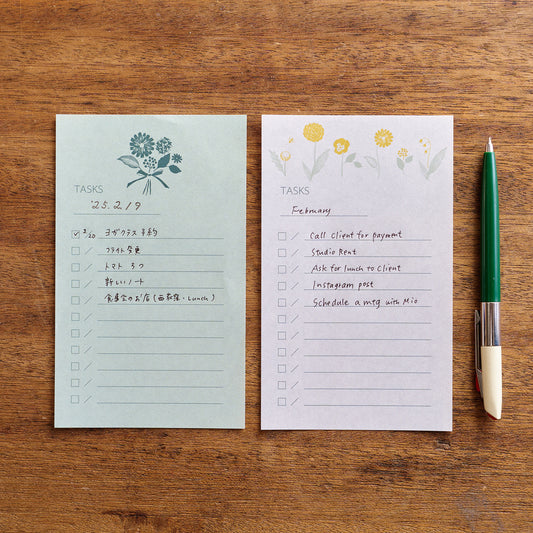 TASKS
'25. 2/9
2/20 ヨガクラス 予約
フライト変更
トマト 3つ
新しいノート
食事会のお店 (西荻窪・Lunch)
TASKS
February
Call client for payment
Studio Rent
Ask for lunch to Client
Instagram post
Schedule a mtg with Mio